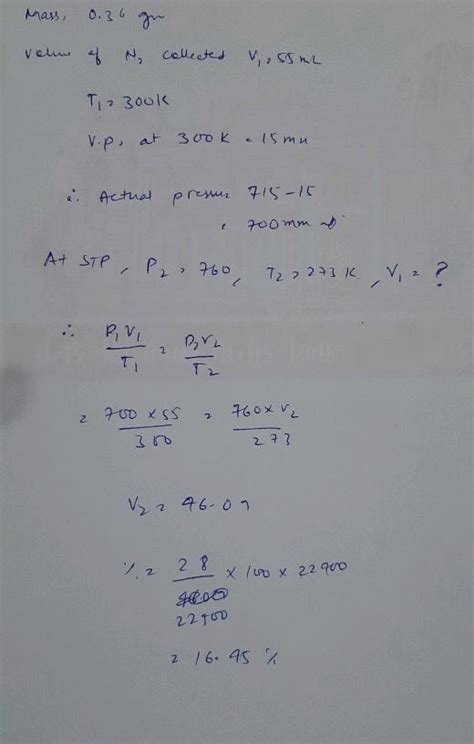 Mass, 0.36 gm
Volume of N₂ collected V₁ = 55 mL
T₁ = 300K
V.p, at 300K = 15mm
∴ Actual pressure 715-15
= 700mm
At STP, P₂ = 760, T₂ = 273K, V₁ = ?
∴ P₁V₁/T₁ = P₂V₂/T₂
= 700×55/300 = 760×V₂/273
V₂ = 46.09
% = 28/22400 × 100 × 22400
= 16.45 %